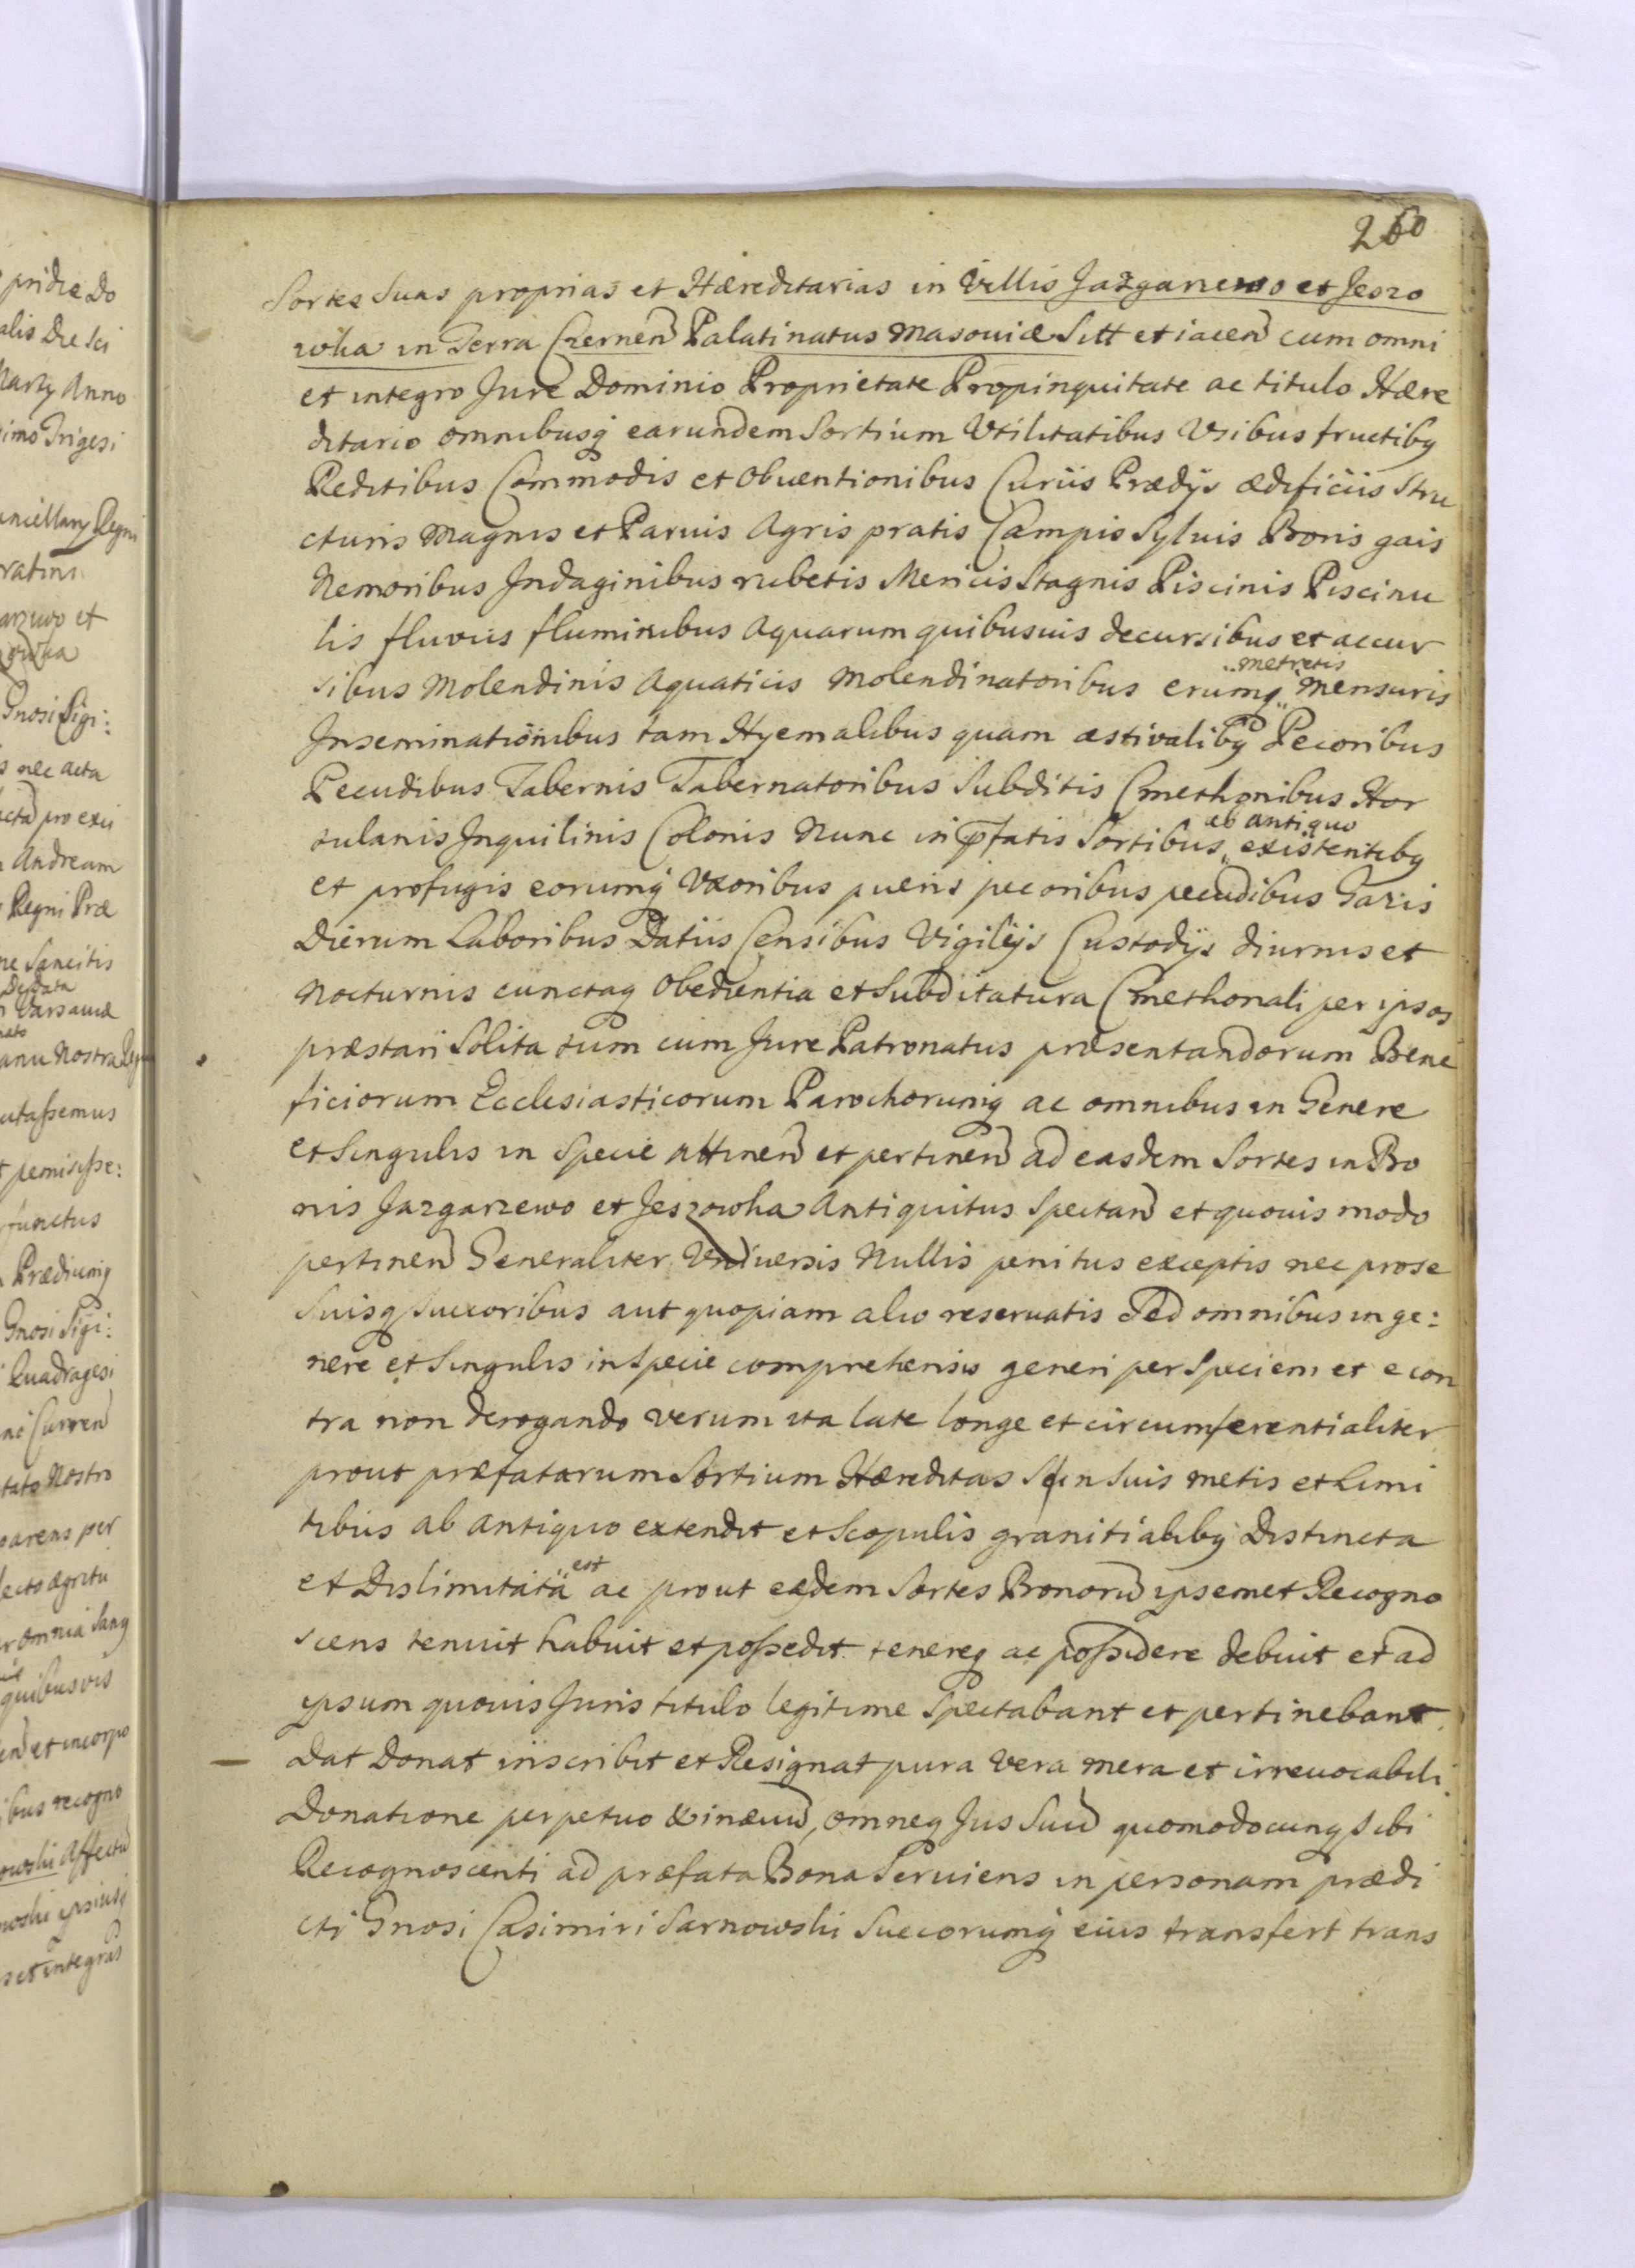 260
Sortes Suas proprias et Hæreditarias in Villis Jazgarzewo et Jeszo
wka in Terra Czernen Palatinatus Masouiæ Sitt et iacen cum omni
et integro Jure Dominio Proprietate Propinquitate ac titulo Hære
ditario omnibusq earundem Sortium Vtilitatibus Vsibus fructibq
Reditibus Commodis et Obuentionibus Curiis Prædijs ædificiis Stru
cturis Magnis et Paruis Agris pratis Campis Syluis Boris gais
Nemoribus Indaginibus rubetis Mericis Stagnis Piscinis Piscinu
lis fluviis fluminibus Aquarum quibusuis decursibus et accur
sibus Molendinis Aquaticis Molendinatoribus erumq metretis Mensuris
Inseminationibus tam Hyemalibus quam æstivalibq Pecoribus
Pecudibus Tabernis Tabernatoribus Subditis Cmethonibus Hor
tulanis Inquilinis Colonis Nunc in pfatis Sortibus ab antiquo existentibq
et profugis eorumq Vxoribus pueris pecoribus pecudibus Gazis
Dierum Laboribus Datiis Censibus Vigilijs Custodijs diurnis et
Nocturnis cunctaq Obedientia et Subditatura Cmethonali per ipsos
præstari Solita tum cum Jure Patronatus præsentandorum Bene
ficiorum Ecclesiasticorum Parochorumq ac omnibus in Genere
et Singulis in Specie Attinen et pertinen ad easdem Sortes in Bo
nis Jazgarzewo et Jeszowka Antiquitus Spectan et quouis modo
pertinen Generaliter Vniuersis Nullis penitus exceptis nec pro se
Suisq Sucxoribus aut quopiam alio reseruatis Sed omnibus in ge:
nere et Singulis in Specie comprehensis generi per Speciem et e con
tra non derogando verum ita late longe et circumferentialiter
prout præfatarum Sortium Hæreditas in Suis metis et Limi
tibus ab antiquo extendit et Scopulis granitialibq Distincta
et Dislimitata est ac prout eædem Sortes Bonoru ipsemet Recogno
scens tenuit habuit et possedit tenereq ac possidere debuit et ad
ipsum quouis Juris titulo legitime Spectabant et pertinebant
Dat Donat inscribit et Resignat pura Vera mera et irreuocabili
Donatione perpetuo & in æuu, omneq Jus Suu quomodocunq Sibi
Recognoscenti ad præfata Bona Seruiens in personam prædi
cti Gnosi Casimiri Sarnowski Succorumq eius transfert trans